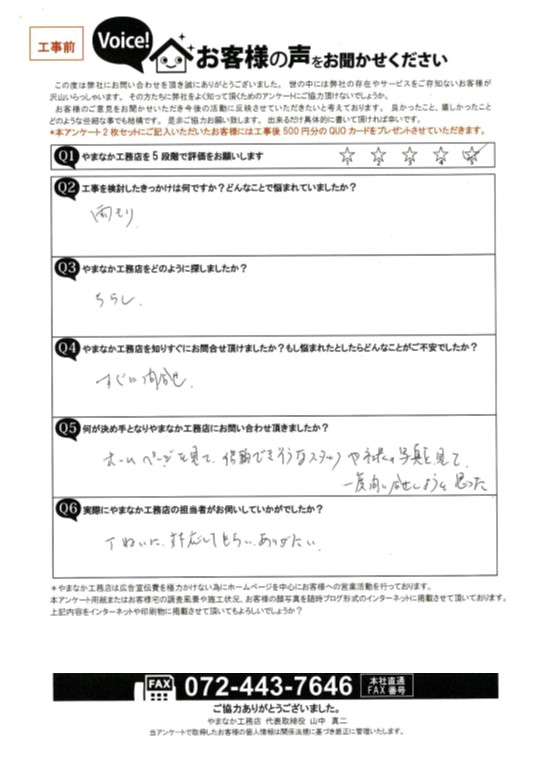 工事前
Voice!
お客様の声をお聞かせください
この度は弊社にお問い合わせを頂き誠にありがとうございました。世の中には弊社の存在やサービスをご存知ないお客様が
沢山いらっしゃいます。その方たちに弊社をよく知って頂くためのアンケートにご協力頂けないでしょうか。
お客様のご意見をお聞かせいただき今後の活動に反映させていただきたいと考えております。良かったこと、嬉しかったこと
どのような些細な事でも結構です。是非ご協力お願い致します。出来るだけ具体的に書いて頂ければ幸いです。
*本アンケート2枚セットにご記入いただいたお客様には工事後500円分のQUOカードをプレゼントさせていただきます。
Q1 やまなか工務店を5段階で評価をお願いします
1 2 3 4 5
Q2 工事を検討したきっかけは何ですか？どんなことで悩まれていましたか？
雨もり
Q3 やまなか工務店をどのように探しましたか？
ちらし.
Q4 やまなか工務店を知りすぐにお問合せ頂けましたか？もし悩まれたとしたらどんなことがご不安でしたか？
すぐに問合せ.
Q5 何が決め手となりやまなか工務店にお問い合わせ頂きましたか？
ホームページを見て、信頼できそうなスタッフや 写真を見て、
一度問い合せしようと思った
Q6 実際にやまなか工務店の担当者がお伺いしていかがでしたか？
ていねいに、対応してもらい、ありがたい.
*やまなか工務店は広告宣伝費を極力かけない為にホームページを中心にお客様への営業活動を行っております。
本アンケート用紙またはお客様宅の調査風景や施工状況、お客様の顔写真を随時ブログ形式のインターネットに掲載させて頂いております。
上記内容をインターネットや印刷物に掲載させて頂いてもよろしいでしょうか？
FAX 072-443-7646 本社直通
FAX番号
ご協力ありがとうございました。
やまなか工務店 代表取締役 山中 真二
当アンケートで取得したお客様の個人情報は関係法規に基づき厳正に管理いたします。